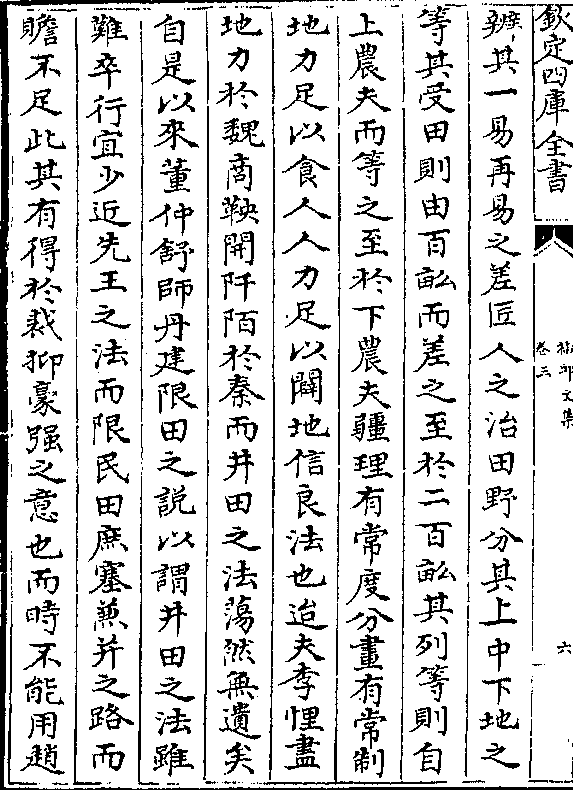 欽定四庫全書
祐邱文集
卷三
六
辨其一易再易之差匠人之治田野分其上中下地之
等其受田則由百畝而差之至於二百畝其列等則自
上農夫而等之至於下農夫疆理有常度分畫有常制
地力足以食人人力足以闢地信良法也迨夫李悝盡
地力於魏商鞅開阡陌於秦而井田之法蕩然無遺矣
自是以來董仲舒師丹建限田之說以謂井田之法雖
難卒行宜少近先王之法而限民田庶塞兼并之路而
贍不足此其有得於裁抑豪强之意也而時不能用趙